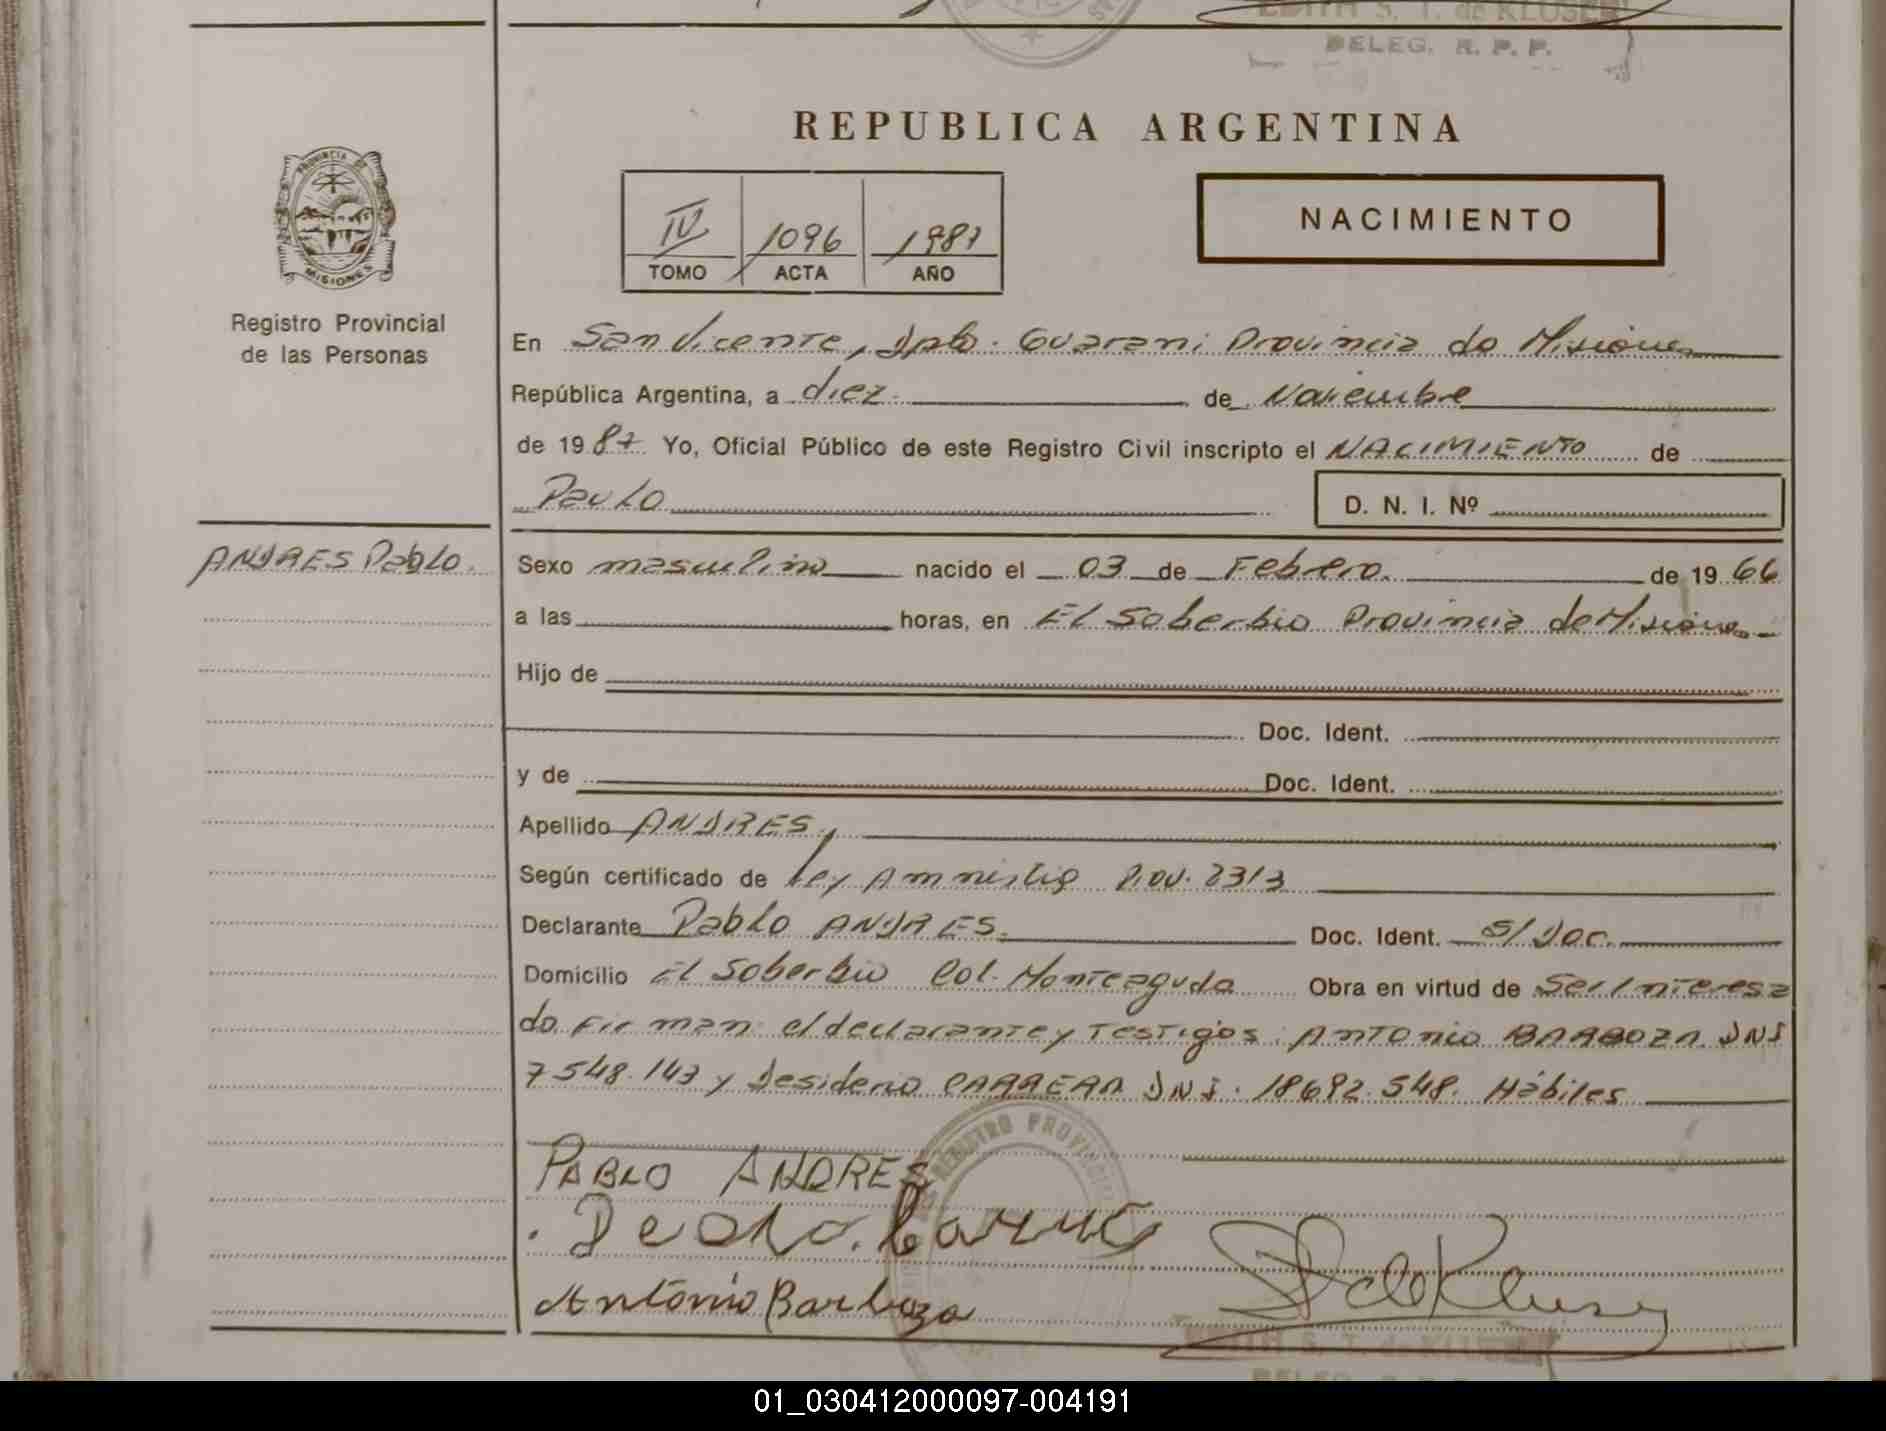 EDITH S. T. de KLUSER
DELEG. R. P. P.
REPUBLICA ARGENTINA
PROVINCIA DE
MISIONES
Registro Provincial
de las Personas
IV 1096 1987
TOMO ACTA AÑO
NACIMIENTO
En San Vicente, Dpto. Guarani Provincia de Misiones
República Argentina, a diez de Noviembre
de 1987 Yo, Oficial Público de este Registro Civil inscripto el NACIMIENTO de
Pablo D. N. I. Nº
ANDRES Pablo.
Sexo masculino nacido el 03 de Febrero. de 1966
a las horas, en El Soberbio Provincia de Misiones
Hijo de
Doc. Ident.
y de Doc. Ident.
Apellido ANDRES,
Según certificado de Ley Amnistia Prov. 2313
Declarante Pablo ANDRES. Doc. Ident. S/Doc.
Domicilio El Soberbio Col. Monteagudo Obra en virtud de Ser Interesa
do Firman: el declarante y Testigos: ANTONIO BARBOZA DNI
7548.143 y Desiderio CARRERA DNI. 18692.548. Hábiles
REGISTRO PROVINCIAL
PABLO ANDRES
António Barboza
EDITH S. T. de KLUSER
DELEG. R. P. P.
01_030412000097-004191